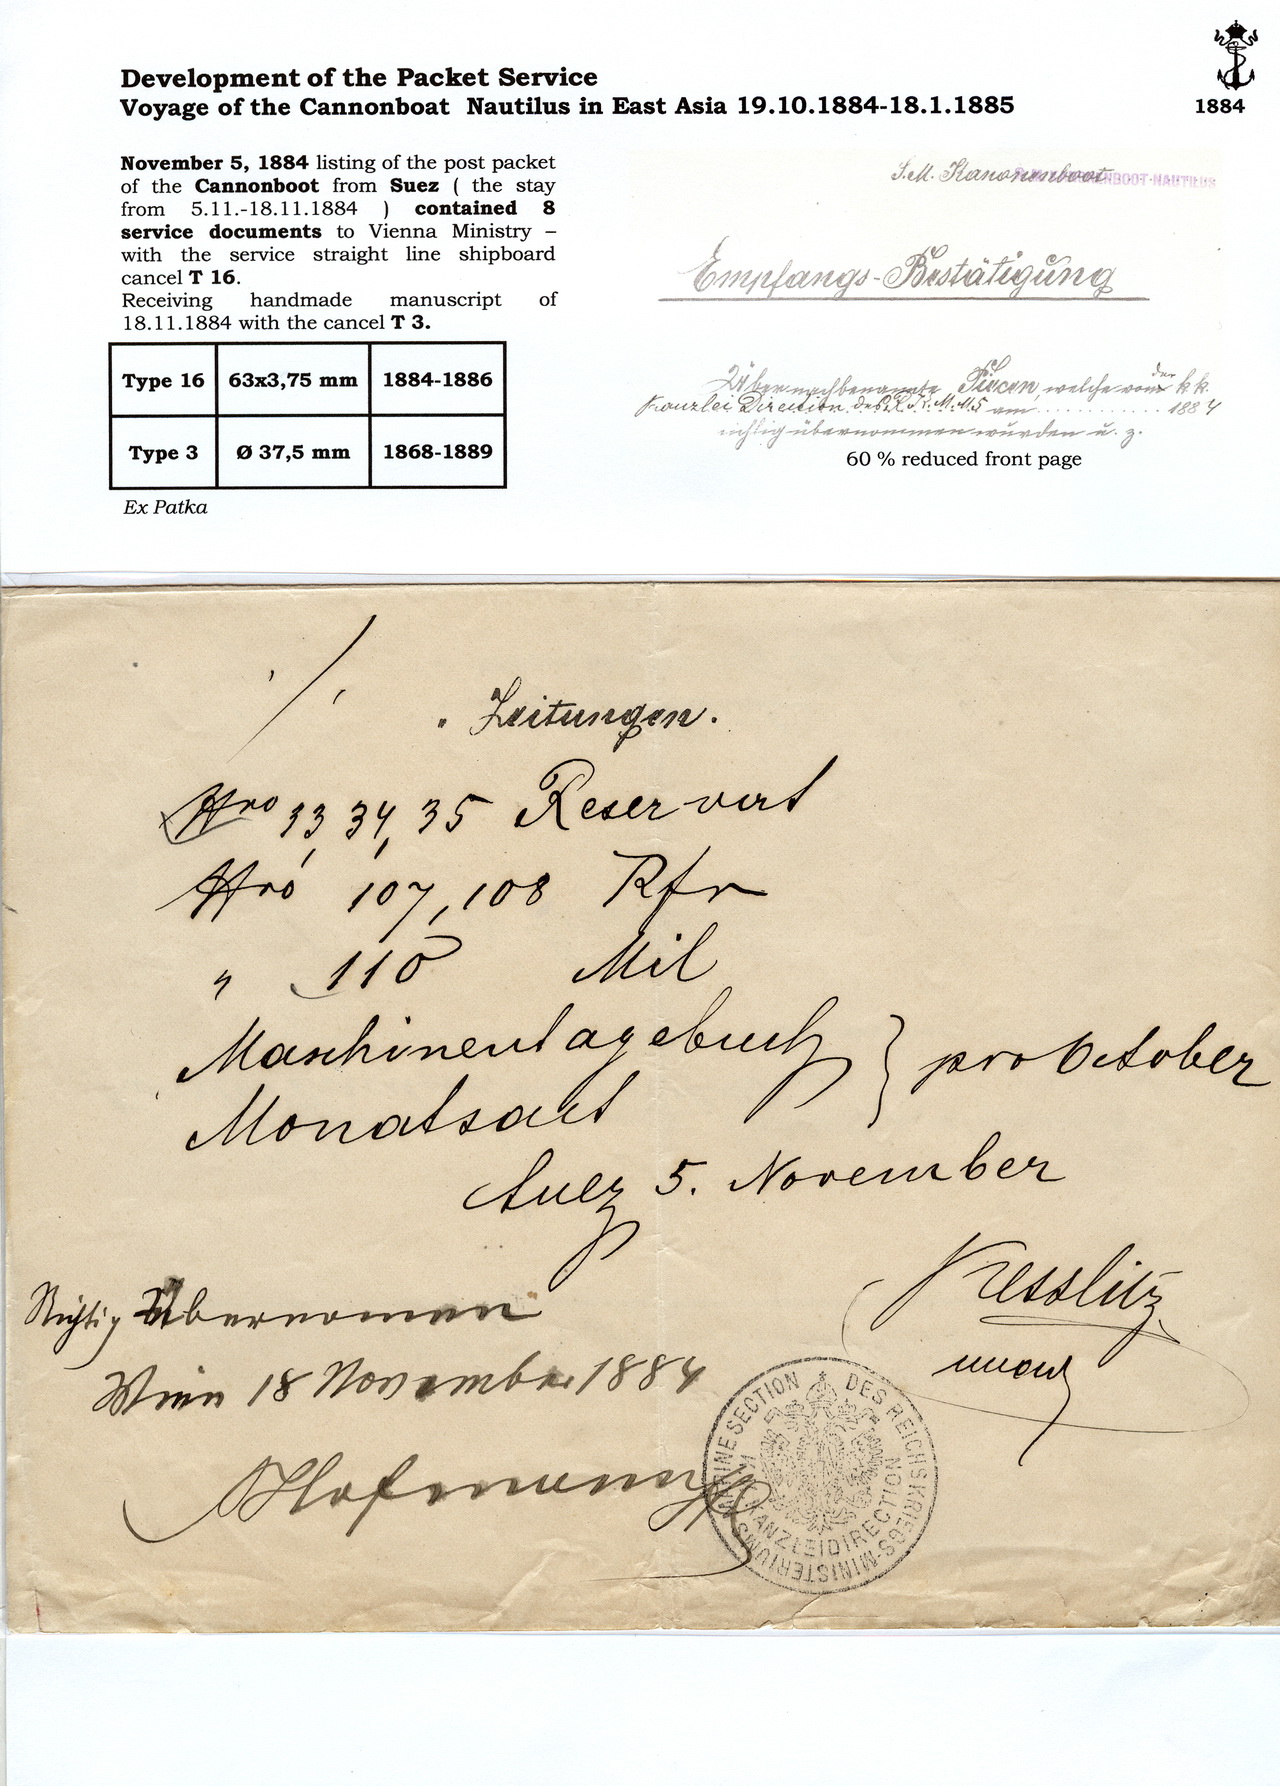 Development of the Packet Service
Voyage of the Cannonboat Nautilus in East Asia 19.10.1884-18.1.1885
1884
November 5, 1884 listing of the post packet
of the Cannonboot from Suez ( the stay
from 5.11.-18.11.1884 ) contained 8
service documents to Vienna Ministry –
with the service straight line shipboard
cancel T 16.
Receiving handmade manuscript of
18.11.1884 with the cancel T 3.
Type 16 63x3,75 mm 1884-1886
Type 3 Ø 37,5 mm 1868-1889
Ex Patka
S.M. Kanonenboot
NBOOT-NAUTILUS
Empfangs-Bestätigung
Über nachbenannte Piecen, welche von der k.k.
Kanzlei Direction des 1884
richtig übernommen wurden u. z.
60 % reduced front page
„ Zeitungen.
Nro 33, 34, 35 Reservat
Nro 107, 108 Rfr
„ 110 Mil
Maschinentagebuch } pro October
Monatsact
Suez 5. November
Kesslitz
Richtig Übernomen
Wien 18 November 1884
Hofmann
MARINE SECTION DES REICHSKRIEGS-MINISTERIUMS
KANZLEIDIRECTION